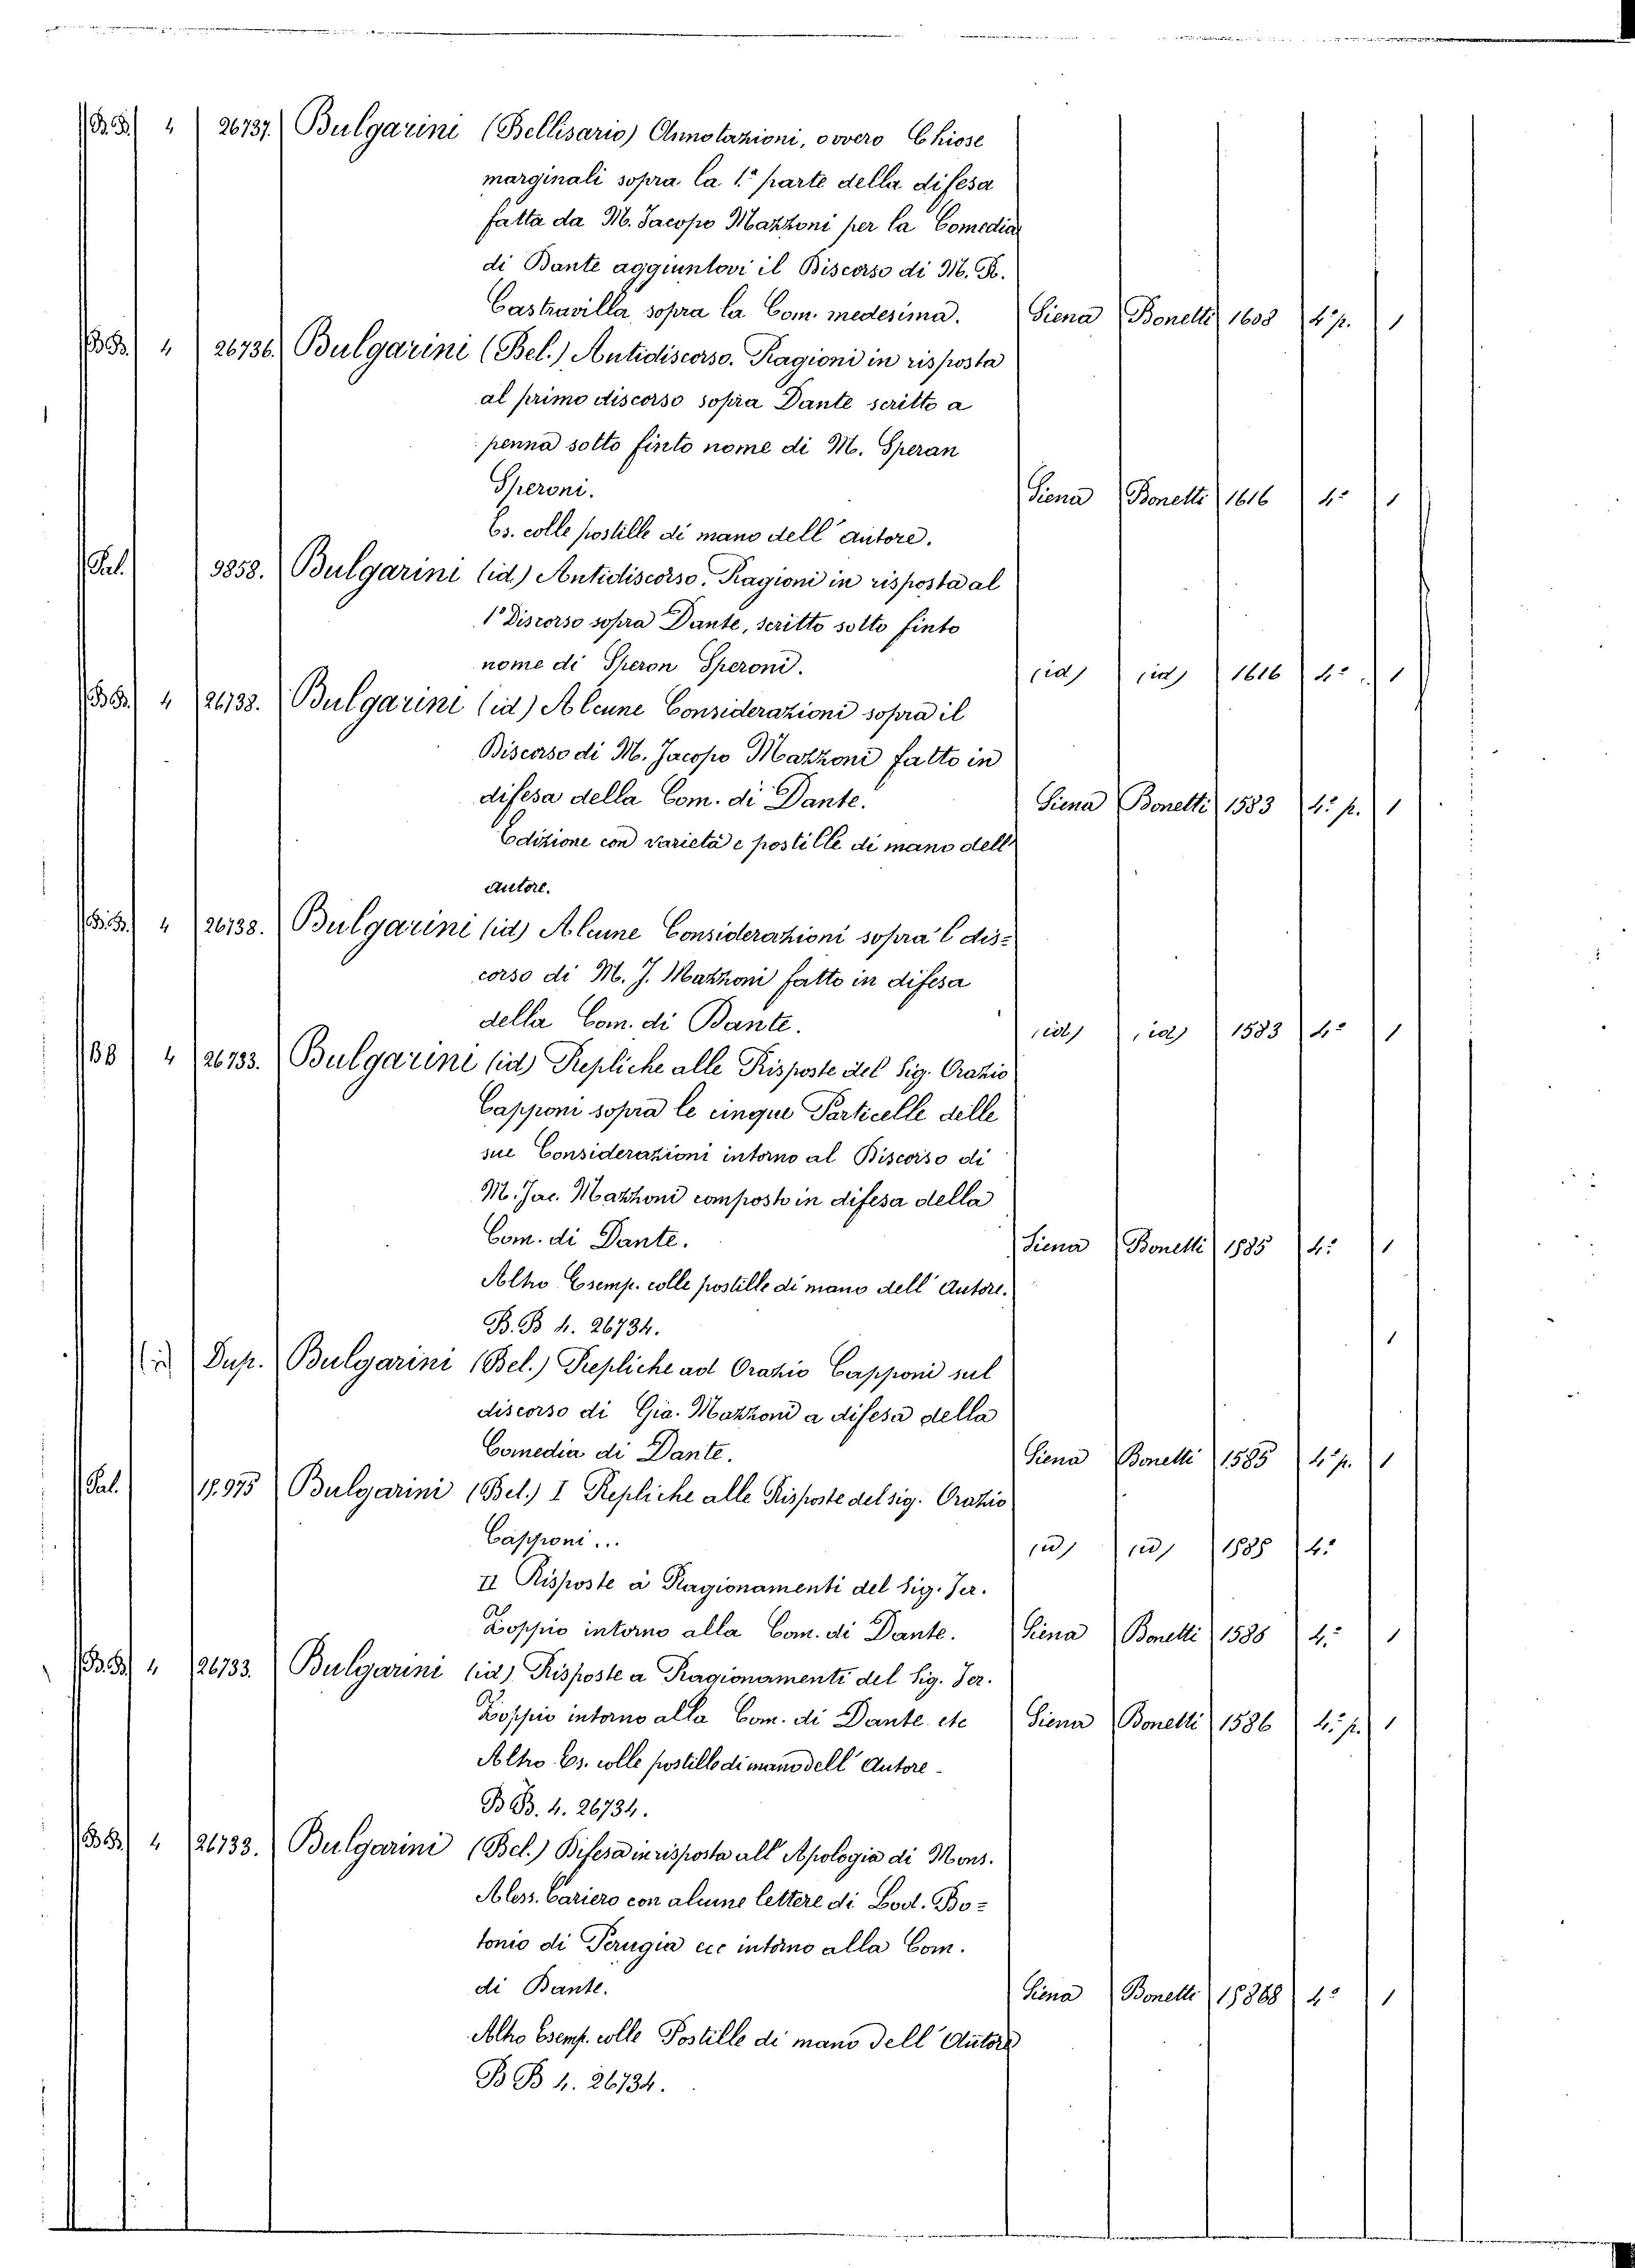 B.B. 4 26737. Bulgarini (Bellisario) Annotazioni, ovvero Chiose
marginali sopra la 1.ª parte della difesa
fatta da M. Jacopo Mazzoni per la Comedia
di Dante aggiuntovi il Discorso di M. R.
Castravilla sopra la Com. medesima. Siena Bonetti 1608 4.º p. 1
B.B. 4 26736. Bulgarini (Bel.) Antidiscorso. Ragioni in risposta
al primo discorso sopra Dante scritto a
penna sotto finto nome di M. Speran
Speroni. Siena Bonetti 1616 4.º 1
Es. colle postille di mano dell'autore.
Pal. 9858. Bulgarini (id.) Antidiscorso. Ragioni in risposta al
1º Discorso sopra Dante, scritto sotto finto
nome di Speron Speroni. (id) (id) 1616 4.º 1
B.B. 4 26738. Bulgarini (id) Alcune Considerazioni sopra il
Discorso di M. Jacopo Mazzoni fatto in
difesa della Com. di Dante. Siena Bonetti 1583 4.º p. 1
Edizione con varietà e postille di mano dell'
autore.
B.B. 4 26738. Bulgarini (id) Alcune Considerazioni sopra 'l dis=
corso di M. J. Mazzoni fatto in difesa
della Com. di Dante. (id) (id) 1583 4.º 1
BB 4 26733. Bulgarini (id) Repliche alle Risposte del Sig. Orazio
Capponi sopra le cinque Particelle delle
sue Considerazioni intorno al Discorso di
M. Jac. Mazzoni composto in difesa della
Com. di Dante. Siena Bonetti 1585 4.º 1
Altro Esemp. colle postille di mano dell'Autore.
B.B 4. 26734. 1
(id) Dup. Bulgarini (Bel.) Repliche ad Orazio Capponi sul
discorso di Gia. Mazzoni a difesa della
Comedia di Dante. Siena Bonetti 1585 4.º p. 1
Pal. 17.975 Bulgarini (Bel.) I Repliche alle Risposte del sig. Orazio
Capponi... (id) (id) 1585 4.º
II Risposte a' Ragionamenti del Sig. Jer.
Zoppio intorno alla Com. di Dante. Siena Bonetti 1586 4.º 1
B.B. 4 26733. Bulgarini (id) Risposte a Ragionamenti del Sig. Jer.
Zoppio intorno alla Com. di Dante etc Siena Bonetti 1586 4.º p. 1
Altro Es. colle postille di mano dell'Autore -
B B. 4. 26734.
B B. 4 26733. Bulgarini (Bel.) Difesa in risposta all'Apologia di Mons.
Aless. Cariero con alcune lettere di Lod. Bo=
tonio di Perugia ecc intorno alla Com.
di Dante. Siena Bonetti 4.º 1
Altro Esemp. colle Postille di mano dell'Autore
B B 4. 26734.